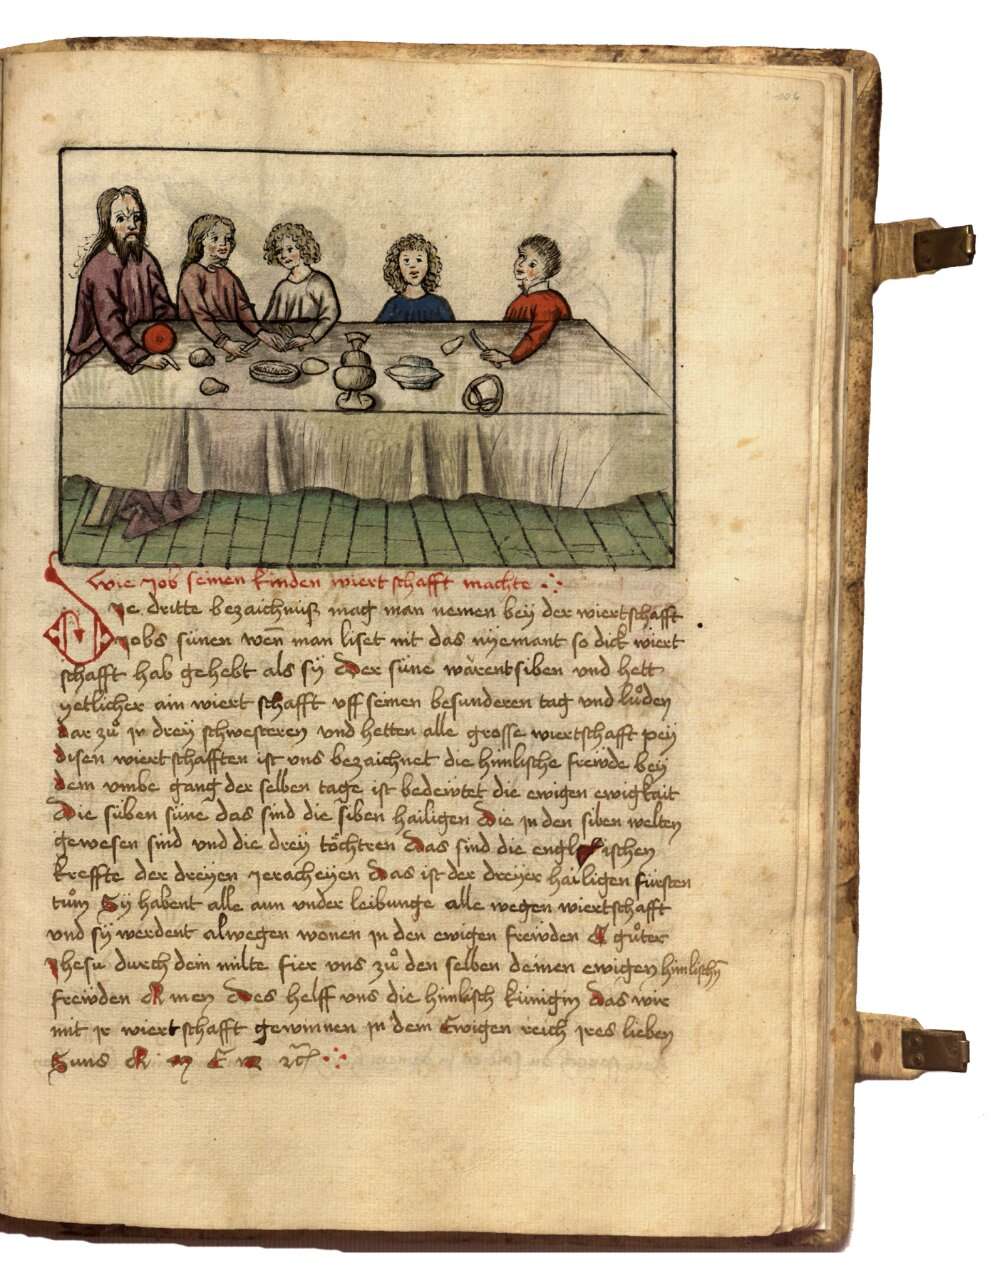 106
Wie Job seinen kinden wiertschafft machte
Die dritte bezaichnuß mag man nemen bey der wiertschafft
Jobs sünen wen̄ man liset nit das nyemant so dick wiert
schafft hab gehebt als sÿ Der süne wärent siben und hett
yetlicher ain wiertschafft uff seinen besunderen tag und luͦden
dar zuͦ jr dreÿ schwesteren und hetten alle grosse wiertschafft peÿ
disen wiertschafften ist uns bezaichnet die himlische frewde beÿ
dem umbe gang der selben tage ist bedewtet die ewigen ewigkait
Die süben süne das sind die siben hailigen Die in den siben welten
gewesen sind und die dreÿ töchtren Das sind die englischen
kreffte der dreÿen Jeracheÿen Das ist der dreÿer hailigen fürsten
tuͦm Sÿ habent alle aun under leibunge alle wegen wiertschafft
und sÿ werdent alwegen wonen in den ewigen frewden O guͦter
Jhesu durch dein milte fier uns zuͦ den selben deinen ewigen himlischn̄
frewden Amen Des helff uns die himlisch künigin Das wir
mit jr wiertschafft gewinnen in dem Ewigen reich jres lieben
Suns A m E n